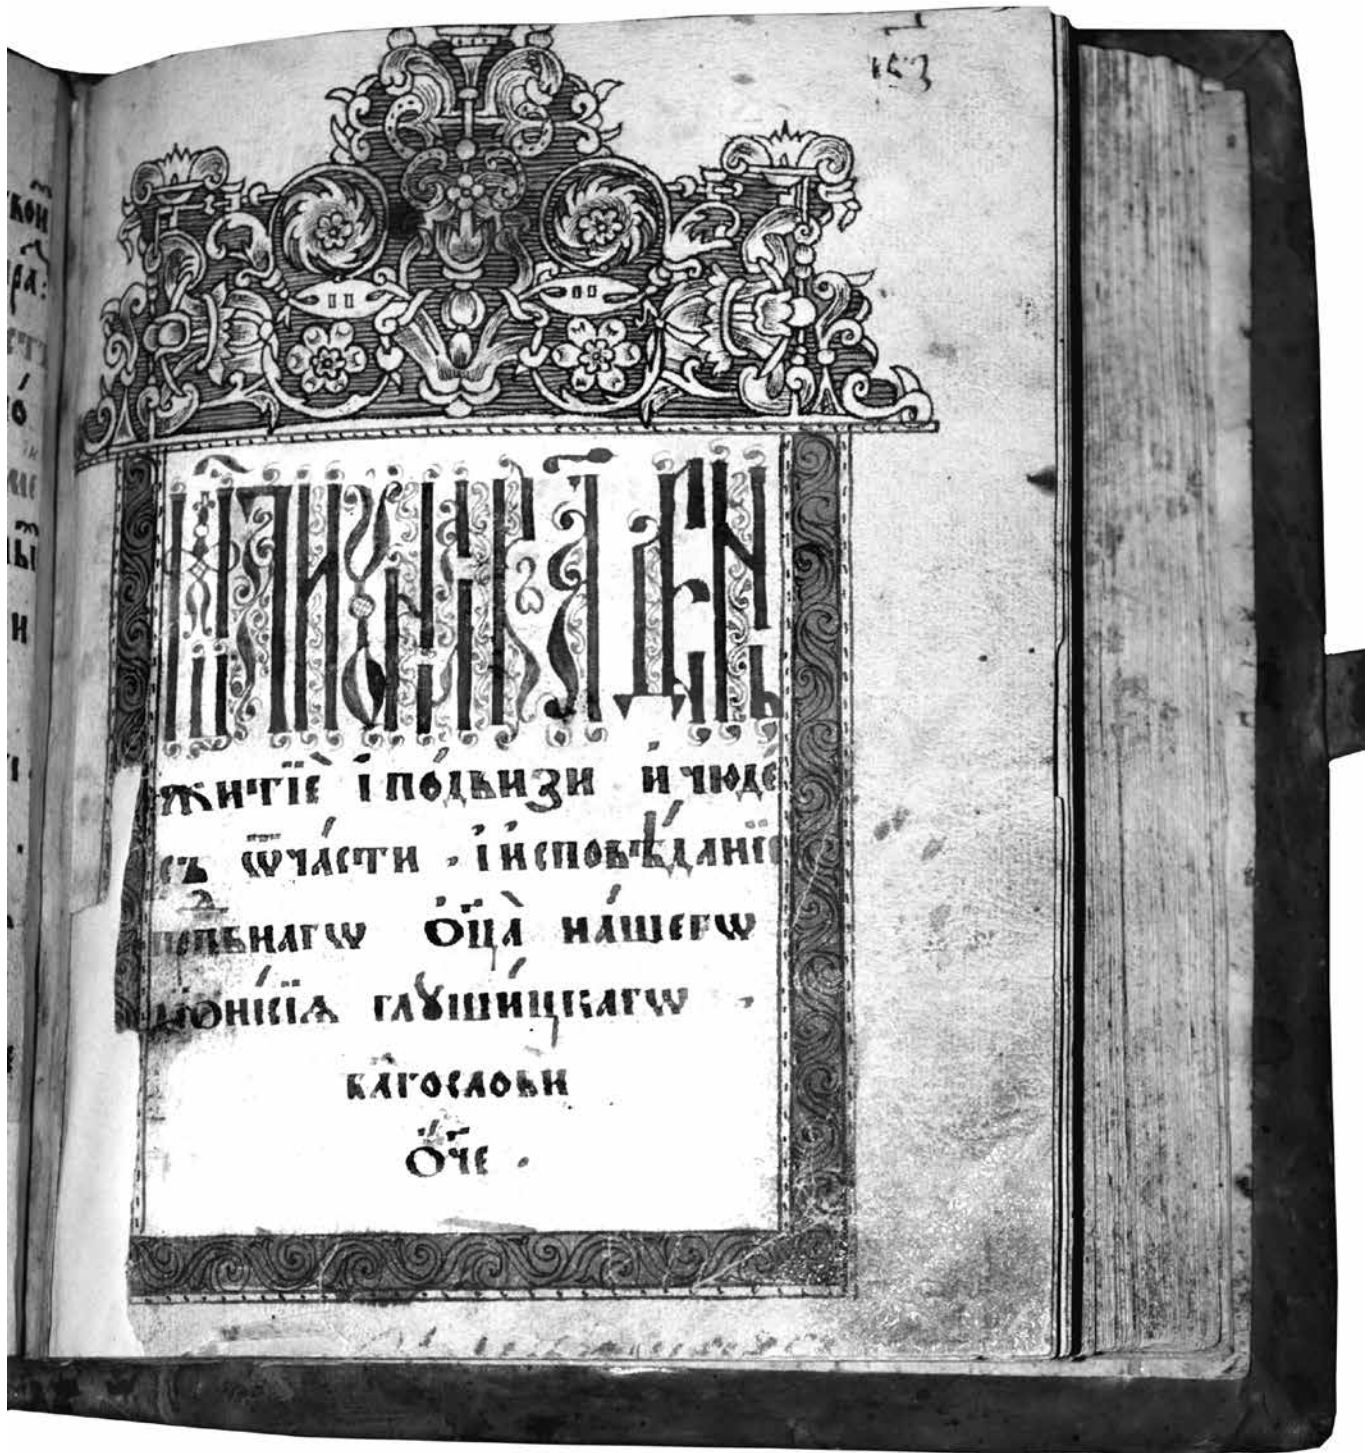 153
ДЕНЬ
житїѐ і по́двизи и҆ чюде
съ ѿча́сти . і҆ и҆сповѣ́данїе
прпⷣбнагѡ ѻ҆ц҃а̀ на́шегѡ
дїони́сїѧ глꙋши́цкагѡ .
бл҃гослови
ѻ҆ч҃е .